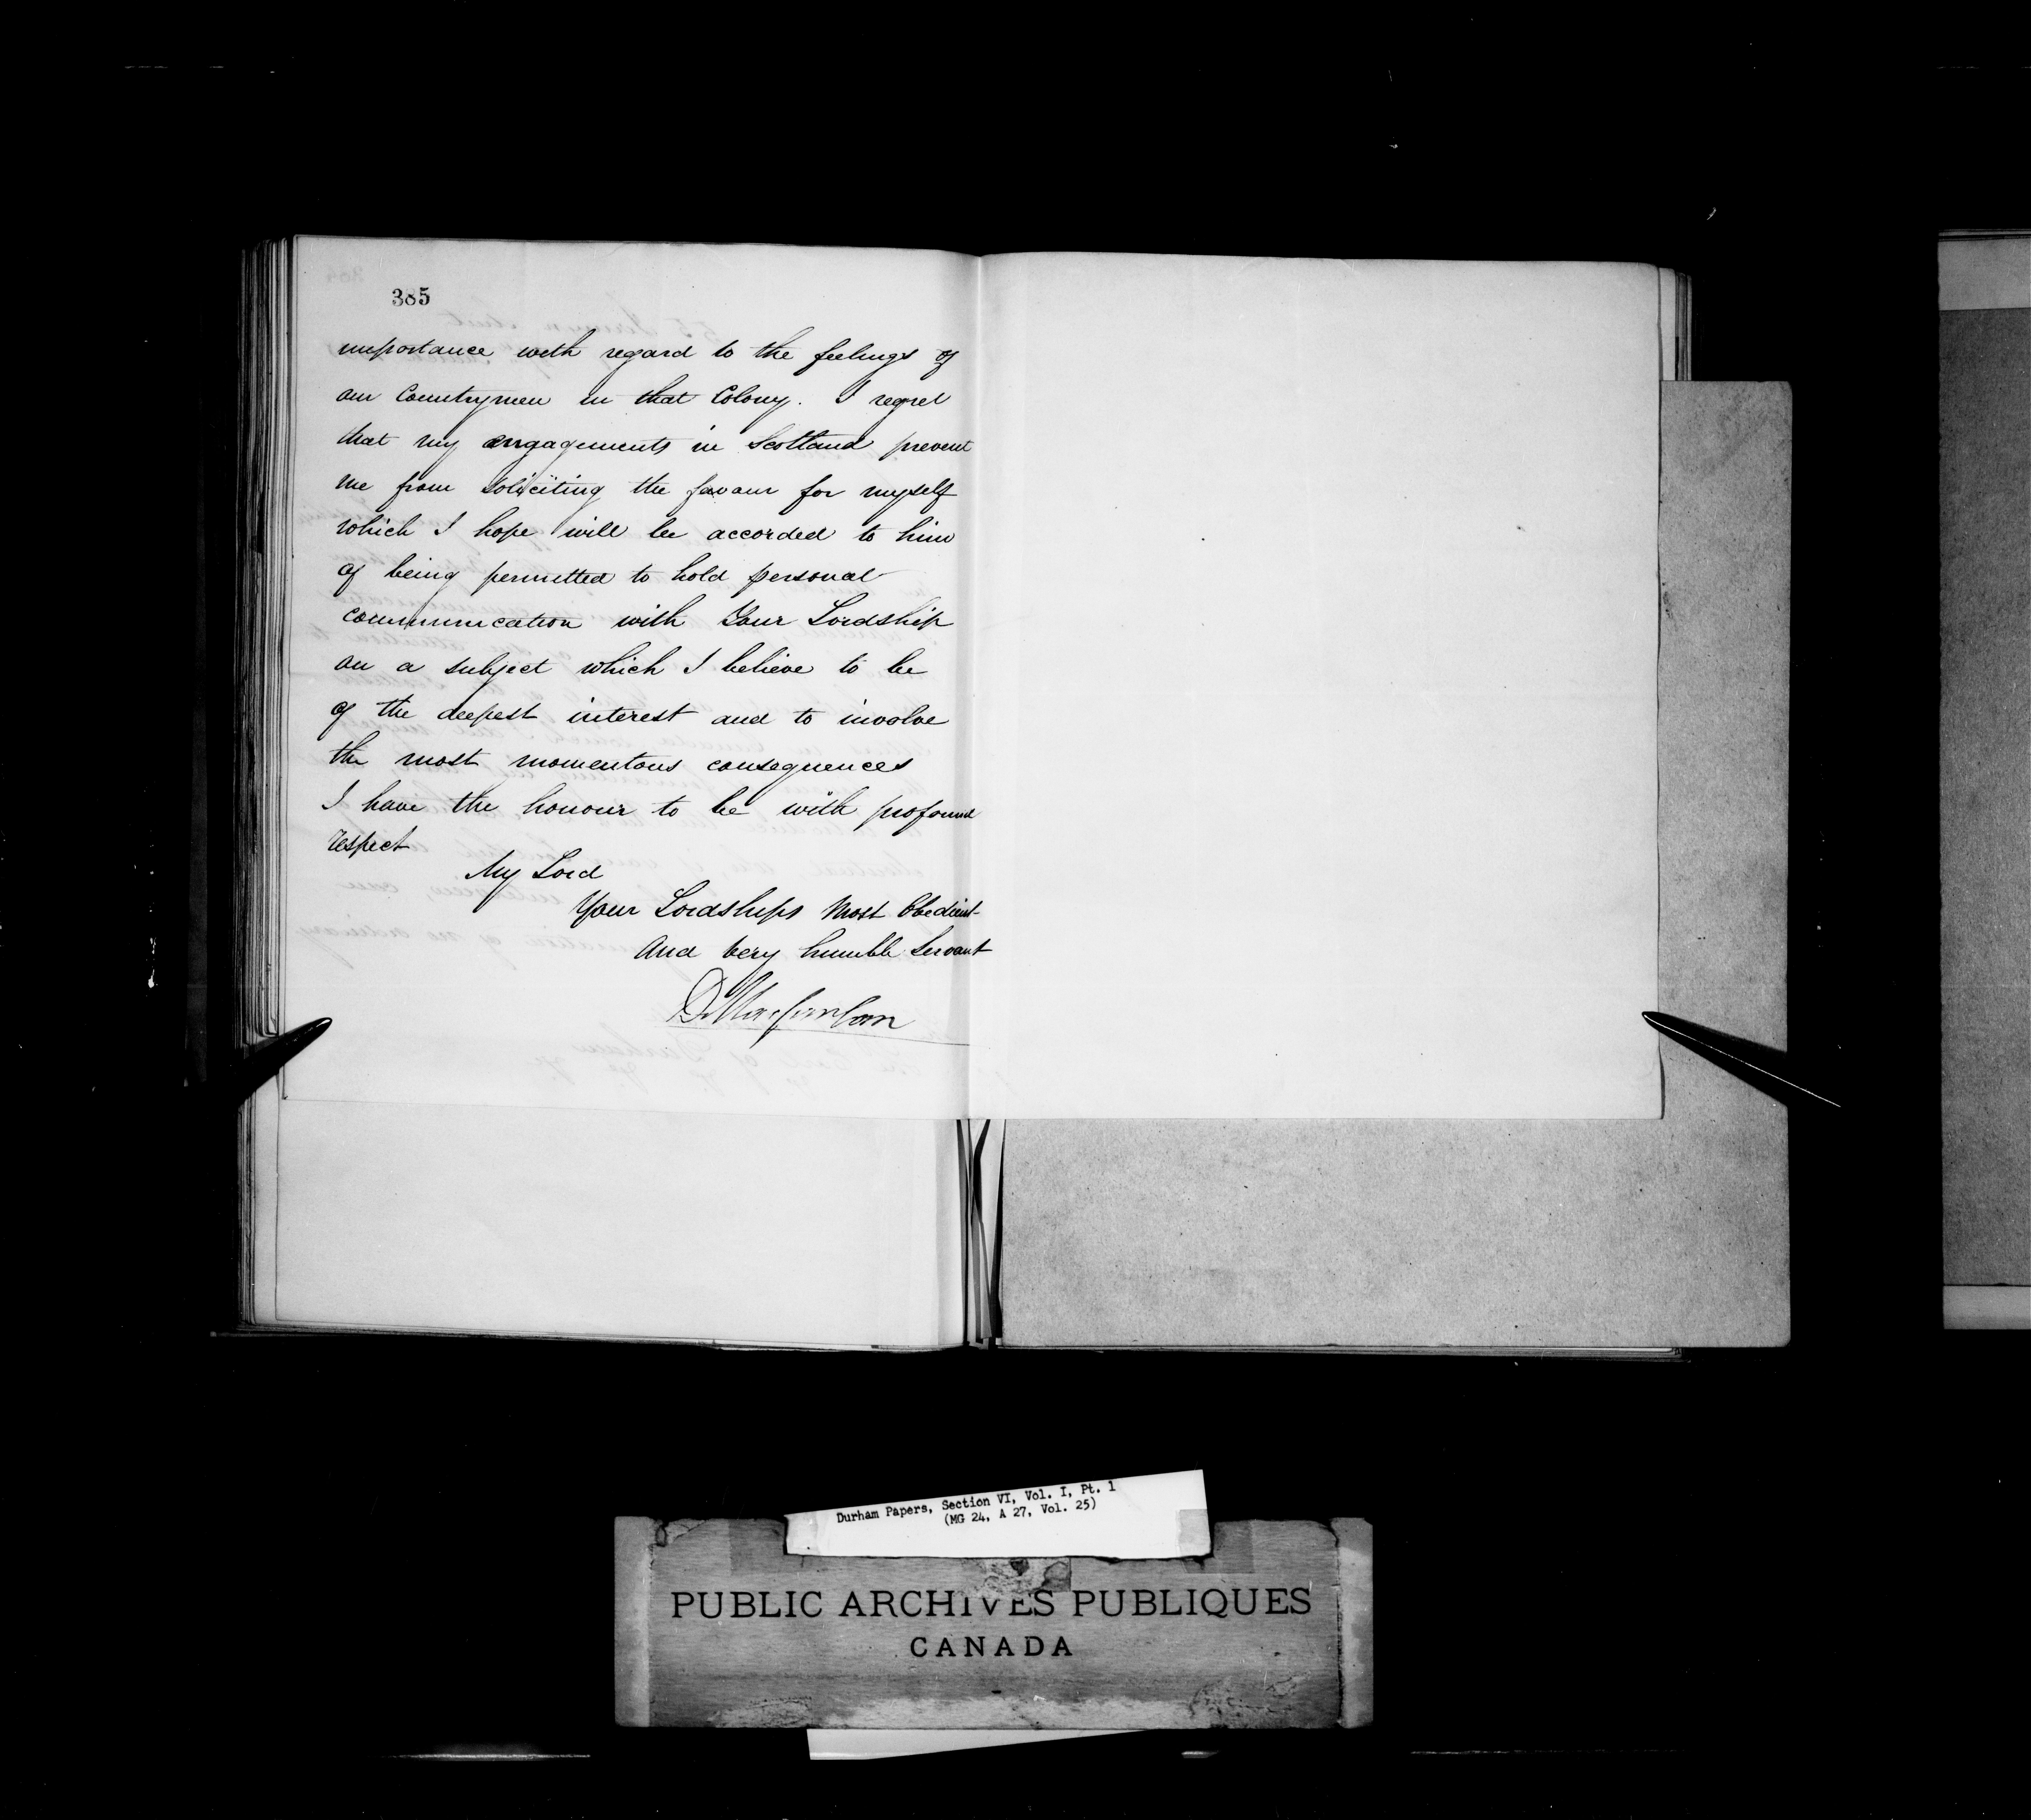 385
importance with regard to the feelings of
our Countrymen in that Colony. I regret
that my engagements in Scotland prevent
me from soliciting the favour for myself
which I hope will be accorded to him
of being permitted to hold personal
communication with Your Lordship
on a subject which I believe to be
of the deepest interest and to involve
the most momentous consequences
I have the honour to be with profound
respect
My Lord
Your Lordships Most Obedient
And very humble Servant
Durham Papers, Section VI, Vol. I, Pt. 1
(MG 24, A 27, Vol. 25)
PUBLIC ARCHIVES PUBLIQUES
CANADA